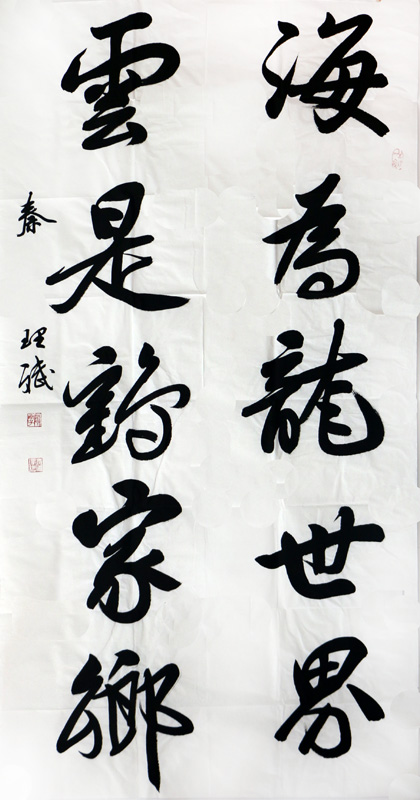 海為龍世界
雲是鶴家鄉
秦理斌